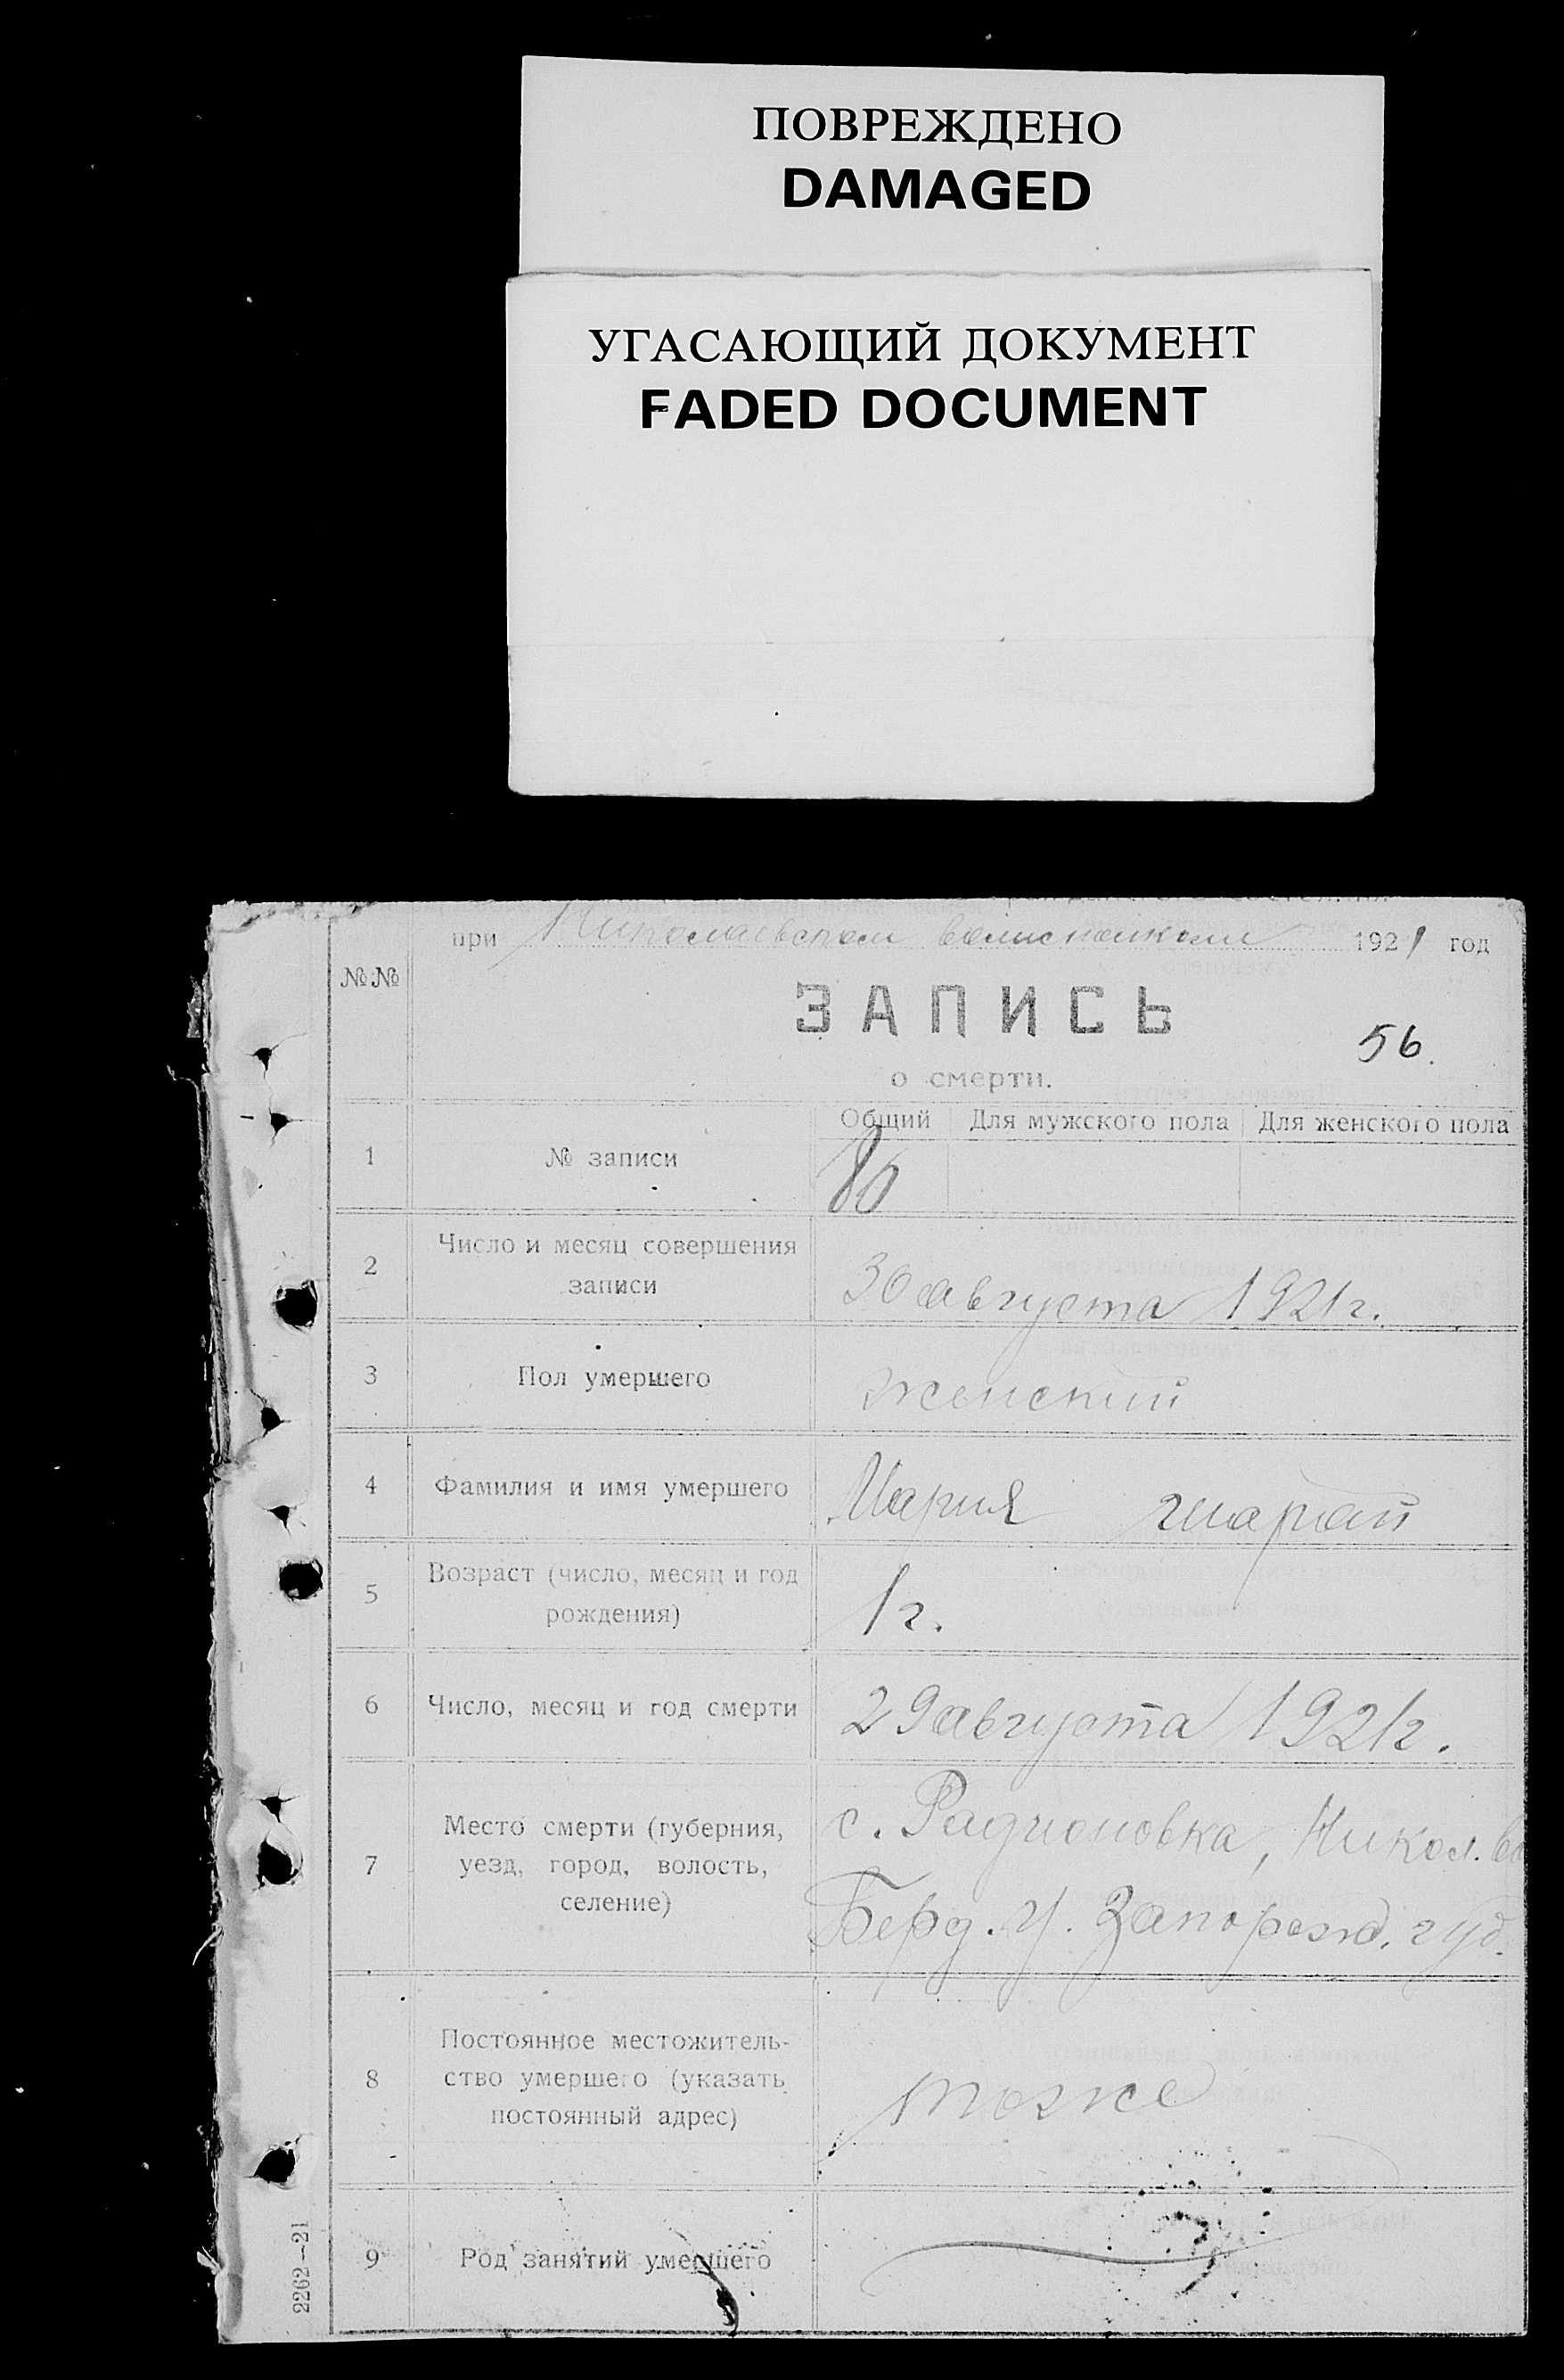 ПОВРЕЖДЕНО
DAMAGED
УГАСАЮЩИЙ ДОКУМЕНТ
FADED DOCUMENT
при Николаевском волисполкоме 1921 год
№№
ЗАПИСЬ
56.
о смерти.
Общий Для мужского пола Для женского пола
1 № записи
2 Число и месяц совершения
записи
30 августа 1921 г.
3 Пол умершего женский
4 Фамилия и имя умершего Мария
5 Возраст (число, месяц и год
рождения)
1 г.
6 Число, месяц и год смерти 29 августа 1921 г.
7 Место смерти (губерния,
уезд, город, волость,
селение)
с. Радионовка, Никол. во
Берд. у. Запорожс. губ.
8 Постоянное местожитель-
ство умершего (указать
постоянный адрес)
тоже
9 Род занятий умершего
2262—21